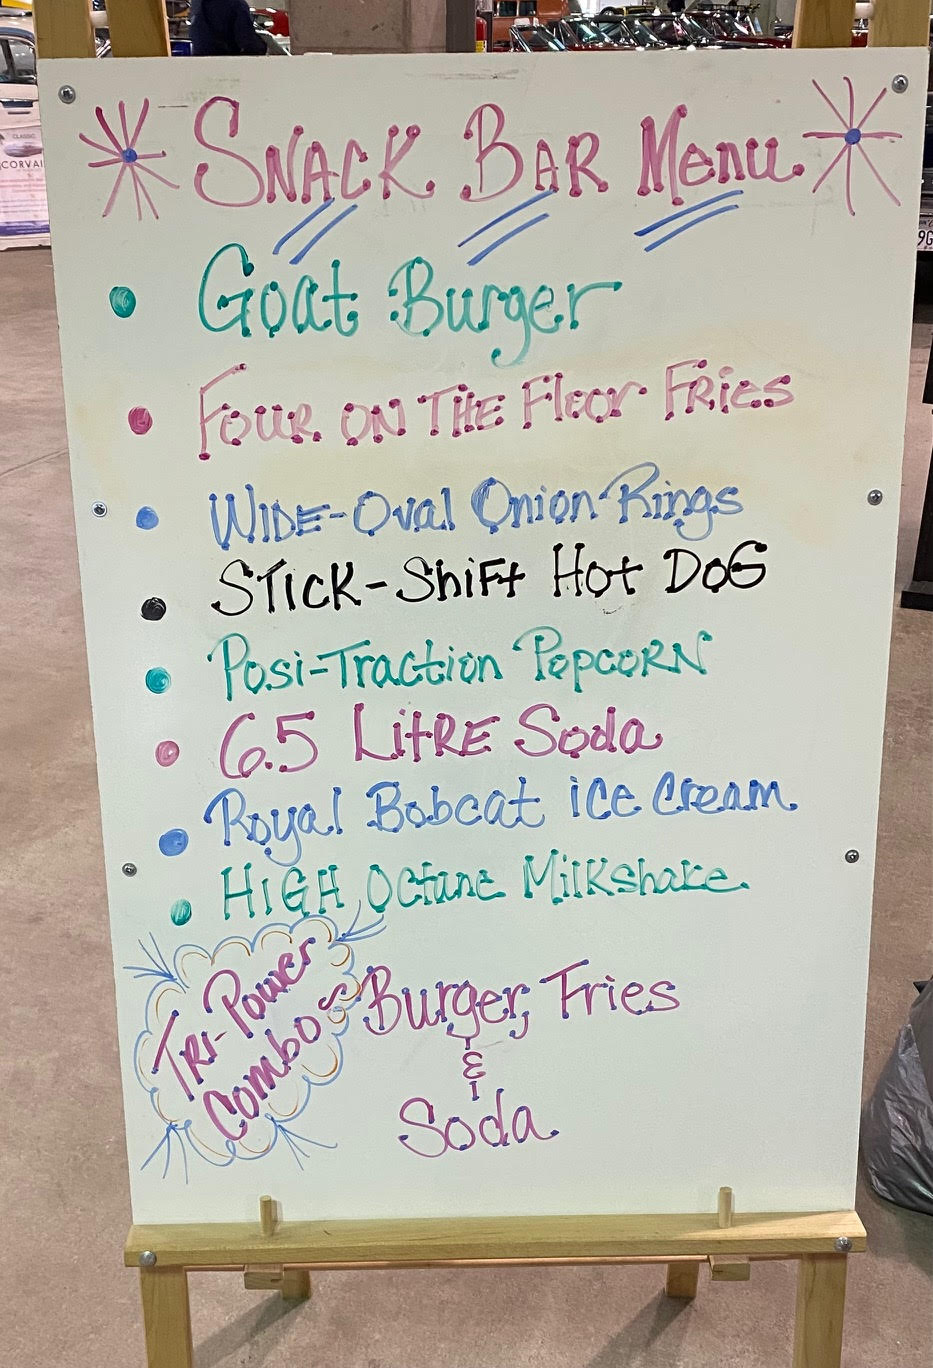 CLASSIC
CORVAI
9G
SNACK BAR Menu
• Goat Burger
• FOUR ON THE Floor FRIES
• WIDE-Oval Onion Rings
• STICK-Shift Hot DOG
• Posi-Traction POPCORN
• 6.5 LitRE Soda
• Royal Bobcat ice cream
• HIGH Octane Milkshake
TRI-Power
Combo ~ Burger, Fries
&
Soda